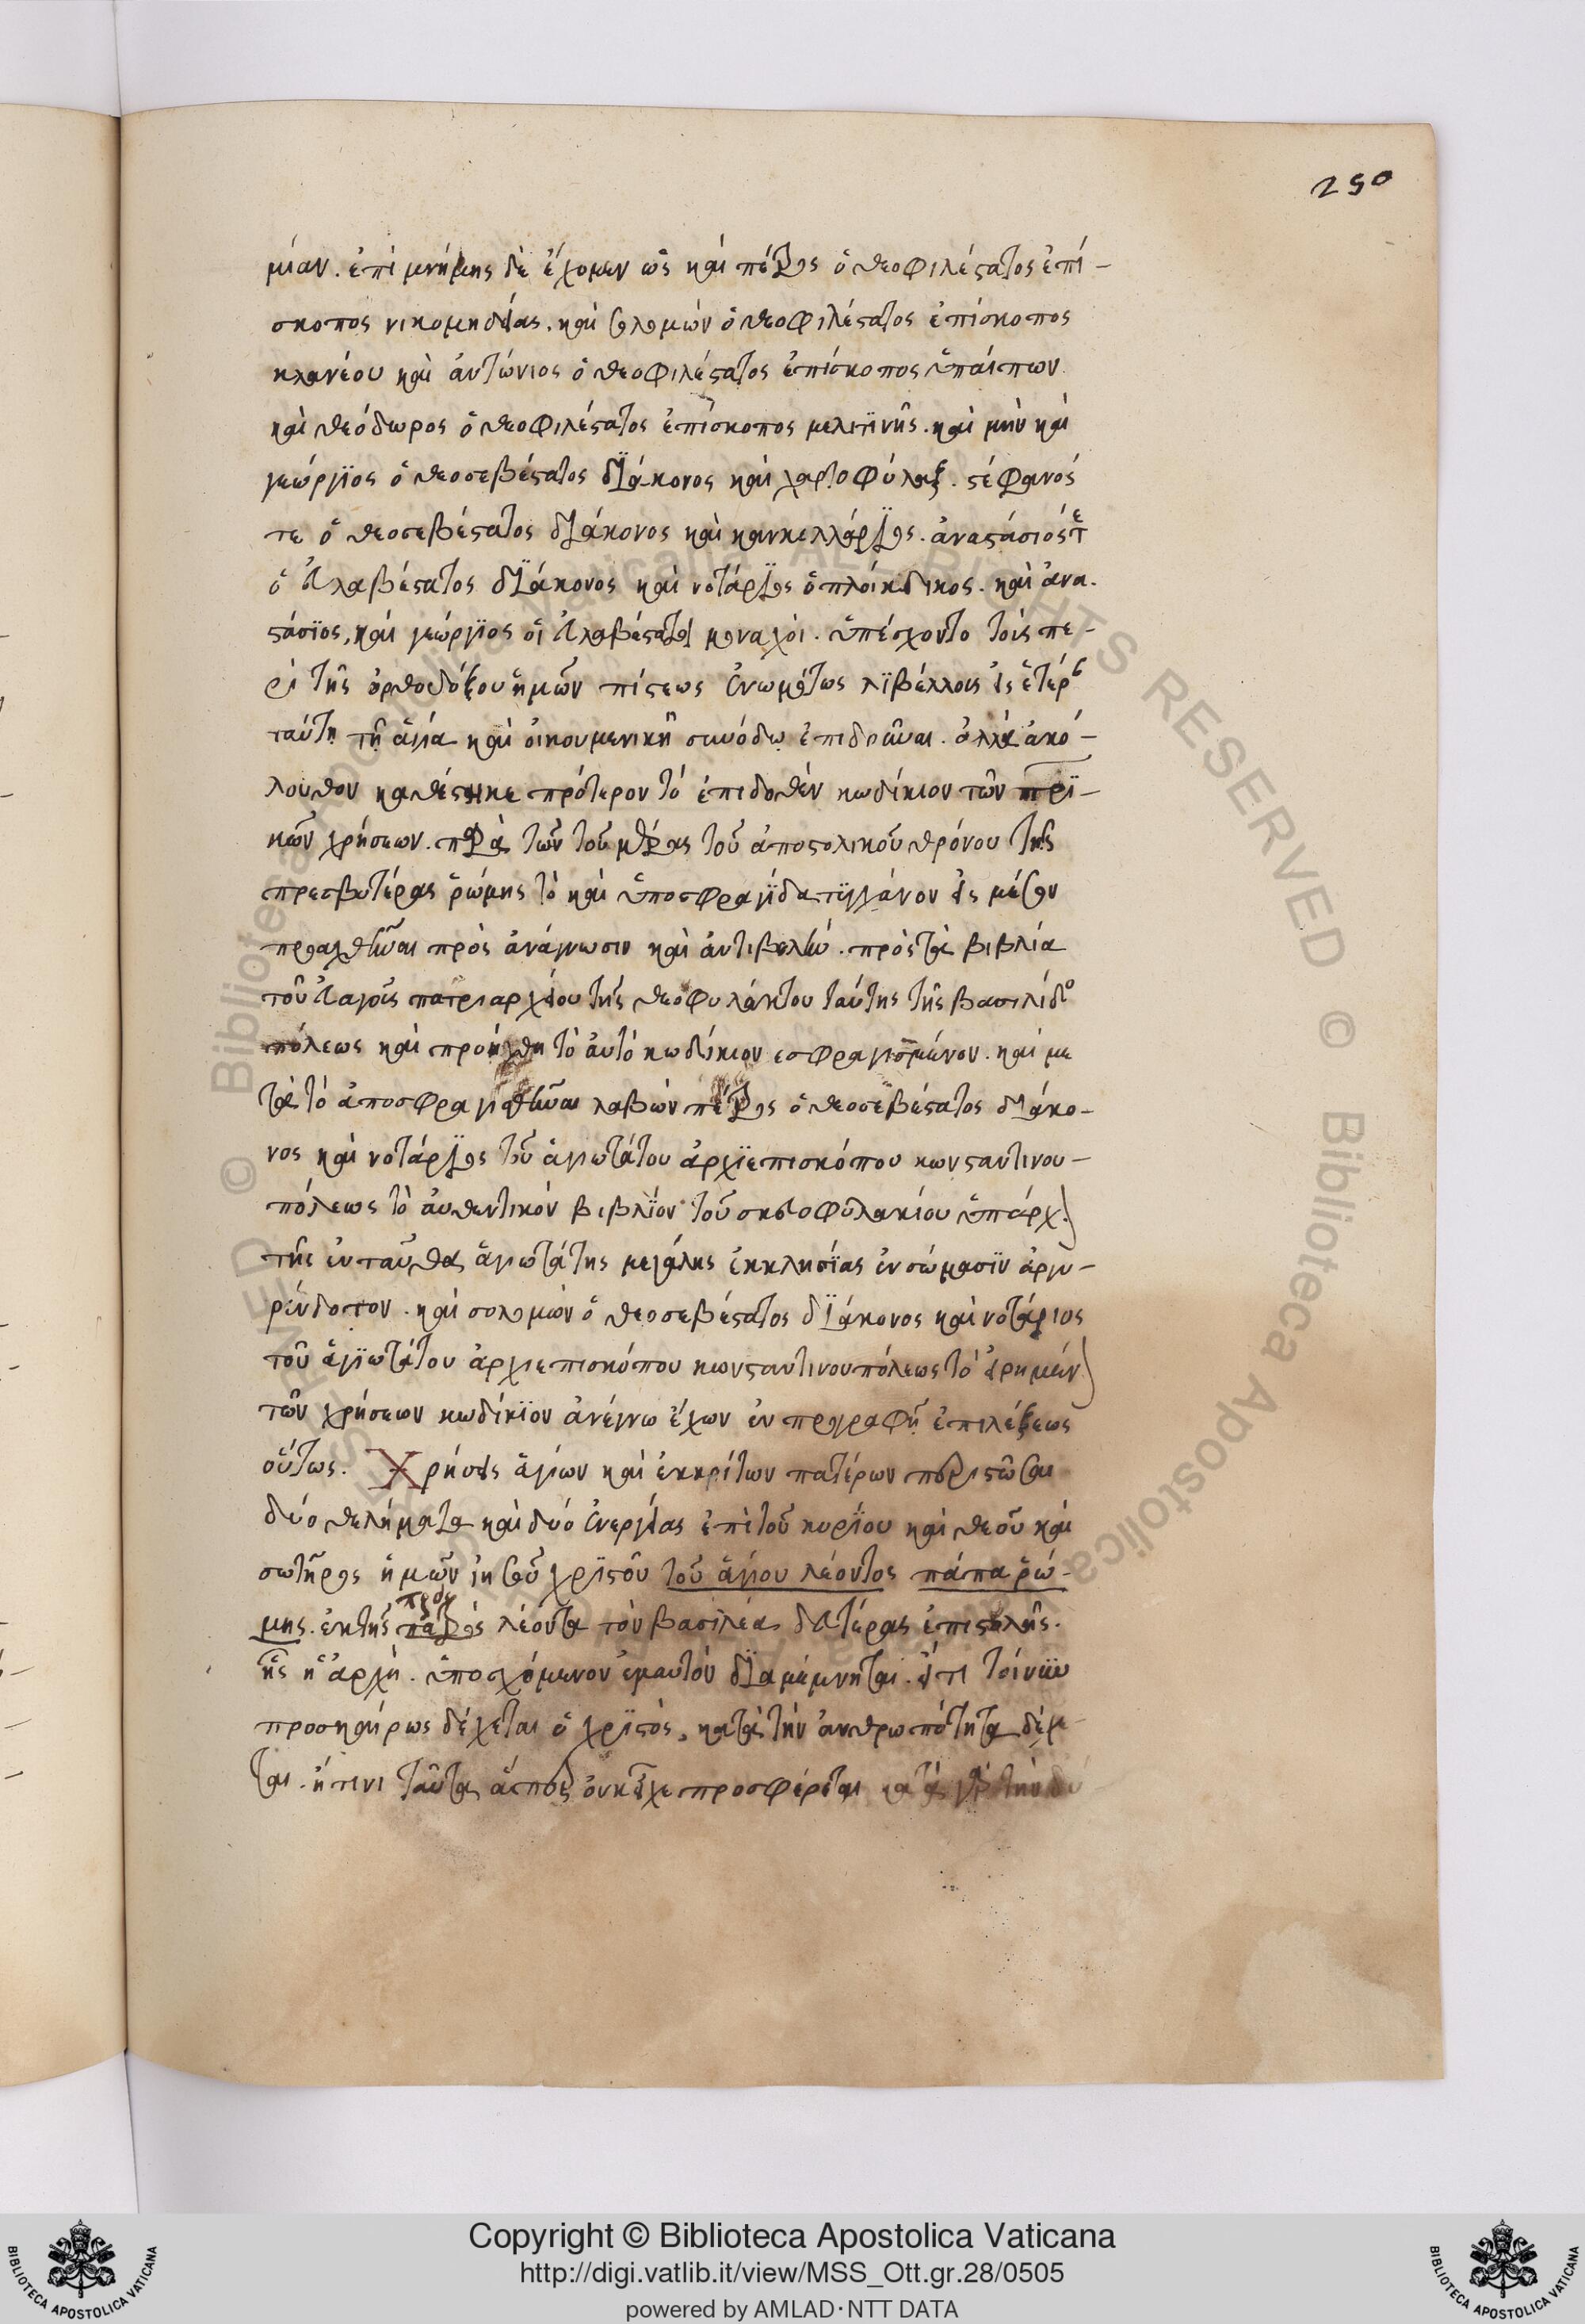 250
μίαν. ἐπὶ μνήμης δὲ ἔχομεν ὡς καὶ πέτρος ὁ θεοφιλέστατος ἐπί-
σκοπος νικομηδείας. καὶ σολομών ὁ θεοφιλέστατος ἐπίσκοπος
κλανέου καὶ ἀντώνιος ὁ θεοφιλέστατος ἐπίσκοπος ὑπαίπων
καὶ θεόδωρος ὁ θεοφιλέστατος ἐπίσκοπος μελιτϊνῆς. καὶ μὴν καὶ
γεώργϊος ὁ θεοσεβέστατος δϊάκονος καὶ χαρτοφύλαξ. στέφανός
τε ὁ θεοσεβέστατος διάκονος καὶ κανκελλάρϊος. ἀναστάσιός τε
ὁ εὐλαβέστατος δϊάκονος καὶ νοτάρϊος ὁ πλοίκδικος. καὶ ἀνα-
στάσϊος, καὶ γεώργϊος οἱ εὐλαβέστατοι μοναχοὶ. ὑπέσχοντο τοὺς πε-
ρὶ τῆς ὀρθοδόξου ἡμῶν πίστεως ἐνωμότως λϊβέλλους εἰς ἑτέρας
ταύτη τῆ ἁγία καὶ οἰκουμενικῆ συνόδω ἐπιδοῦναι. ἀλλὰ ἀκό-
λουθον καθέστηκε πρότερον τὸ ἐπιδοθὲν κωδίκιον τῶν πρϊ-
κῶν χρήσεων. παρὰ τῶν τοῦ μέρος τοῦ ἀποστολικοῦ θρόνου τῆς
πρεσβυτέρας ῥώμης τὸ καὶ ὑποσφραγῖδα τϋγχάνον εἰς μέσον
προαχθῆναι πρὸς ἀνάγνωσιν καὶ ἀντιβολὴν. πρὸς τὰ βιβλία
τοῦ εὐαγοῦς πατριαρχείου τῆς θεοφυλάκτου ταύτης τῆς βασιλίδο
πόλεως καὶ προήχθη τὸ αὐτὸ κωδίκιον εσφραγισμένον. καὶ με
τὰ τὸ ἀποσφραγισθῆναι λαβὼν πέτρος ὁ θεοσεβέστατος διάκο-
νος καὶ νοτάρϊος τοῦ ἁγιωτάτου ἀρχϊεπισκόπου κωνσταντινου-
πόλεως τὸ αὐθεντικὸν βιβλϊον τοῦ σκευοφυλακίου ὑπάρχ
τῆς ἐνταῦθα ἁγιωτάτης μεγάλης ἐκκλησϊας ἐν σώμασϊν ἀργυ-
ρένδοτον. καὶ σολομὼν ὁ θεοσεβέστατος δϊάκονος καὶ νοτάριος
τοῦ ἁγϊωτάτου ἀρχιεπισκόπου κωνσταντινουπόλεως τὸ εἰρημέν
τῶν χρήσεων κωδίκϊον ἀνέγνω ἔχων ἐν προγραφῆ ἐπιλέξεως
οὕτως. Χρήσεις ἁγίων καὶ ἐκκρίτων πατέρων περιστῶσαι
δύο θελήματα καὶ δύο ἐνεργείας ἐπὶ τοῦ κυρϊου καὶ θεοῦ καὶ
σωτῆρος ἡμῶν ἰησοῦ χρϊστοῦ τοῦ ἁγίου λέοντος πάπα ῥώ-
μης. ἐκ τῆς πρὸς πατρὸς λέοντα τὸν βασιλέα δευτέρας ἐπιστολῆς.
ἧς ἡ ἀρχὴ. ὑποσχόμενον ἐμαυτὸν δϊαμέμνηται. ἔτι τοίνυν
προσκαίρως δέχεται ὁ χρϊστὸς, κατὰ τὴν ἀνθρωπότητα δέχε-
ται. ἥτινι ταῦτα ἅπερ οὐκ εἶχε προσφέρεται κατὰ γὰρ τὴν δύ
Copyright © Biblioteca Apostolica Vaticana
http://digi.vatlib.it/view/MSS_Ott.gr.28/0505
powered by AMLAD·NTT DATA